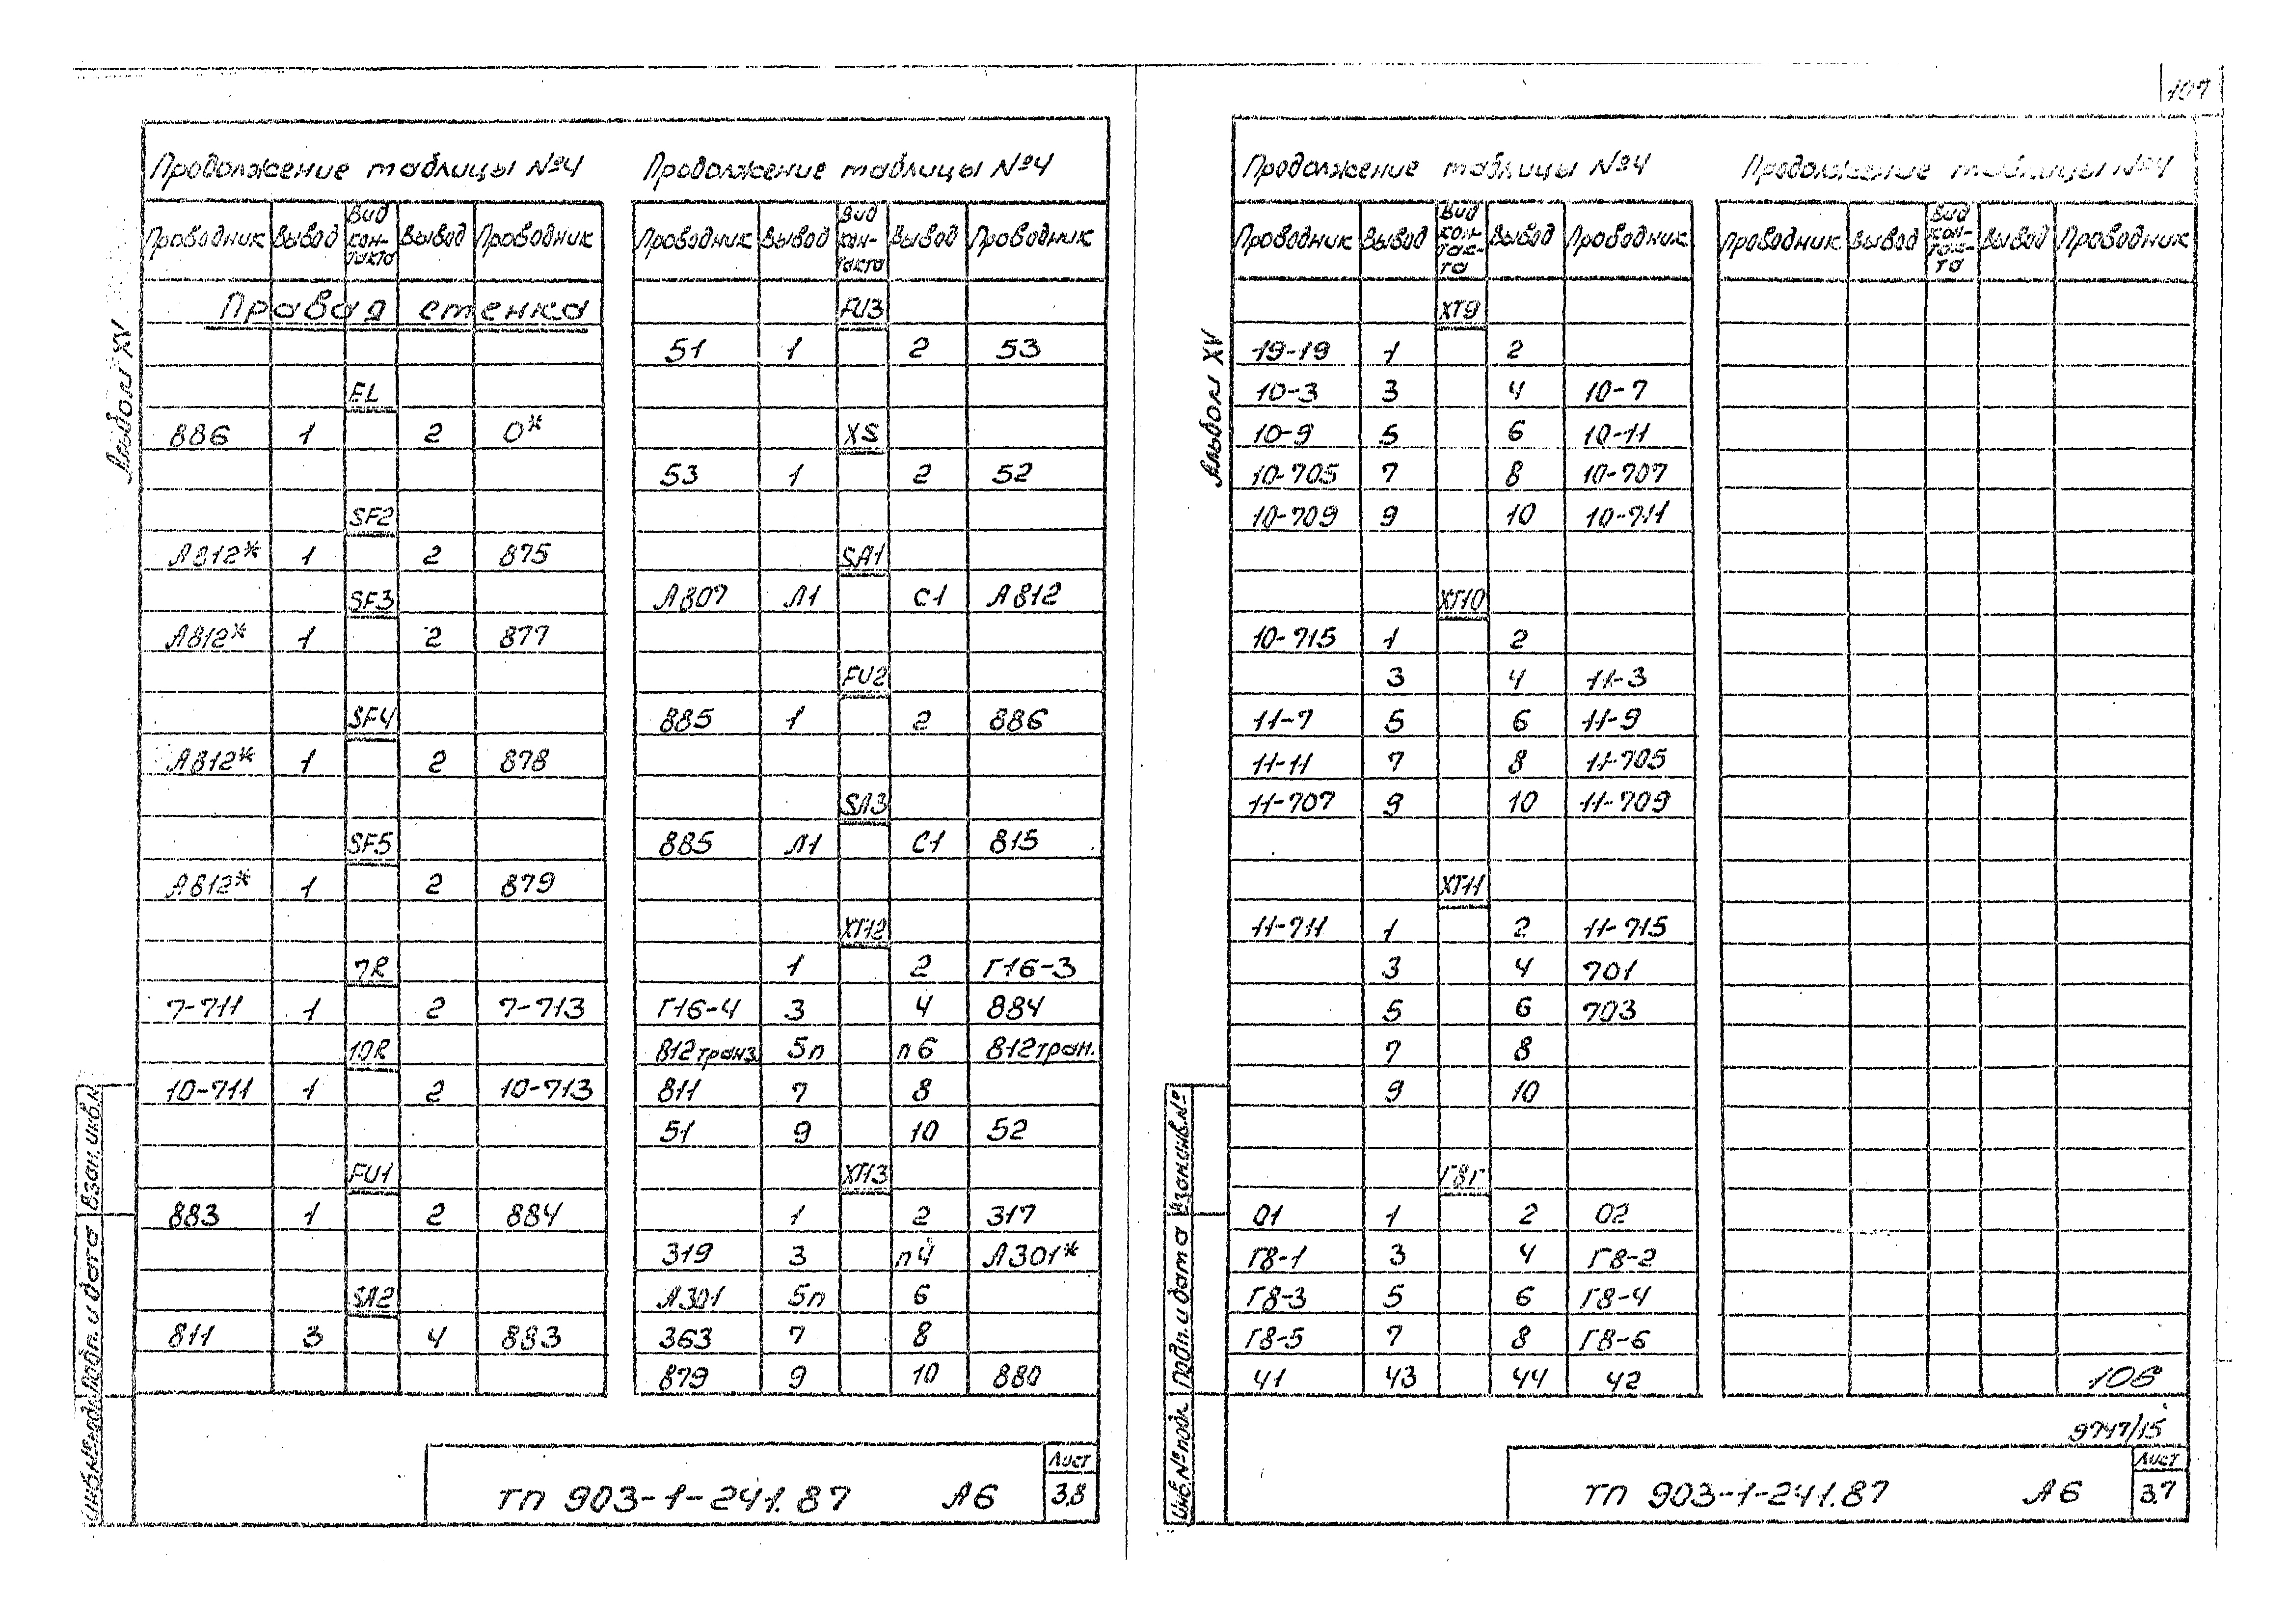 107
Продолжение таблицы №4
Проводник Вывод Вид кон-такта Вывод Проводник
Правая стенка
EL
886 1 2 0*
SF2
А812* 1 2 875
SF3
А812* 1 2 877
SF4
А812* 1 2 878
SF5
А812* 1 2 879
7R
7-711 1 2 7-713
10R
10-711 1 2 10-713
FU1
883 1 2 884
SA2
811 3 4 883
Продолжение таблицы №4
Проводник Вывод Вид кон-такта Вывод Проводник
FU3
51 1 2 53
XS
53 1 2 52
SA1
А807 Л1 С1 А812
FU2
885 1 2 886
SA3
885 Л1 С1 815
XT12
1 2 Г16-3
Г16-4 3 4 884
812транз. 5п п6 812тран.
811 7 8
51 9 10 52
XT13
1 2 317
319 3 п4 А301*
А301 5п 6
363 7 8
879 9 10 880
Альбом XV
Взам. инв.№
Подп. и дата
Инв.№ подл.
ТП 903-1-241.87 А6
Лист
3.8
Продолжение таблицы №4
Проводник Вывод Вид кон-так-та Вывод Проводник
XT9
19-19 1 2
10-3 3 4 10-7
10-9 5 6 10-11
10-705 7 8 10-707
10-709 9 10 10-711
XT10
10-715 1 2
3 4 11-3
11-7 5 6 11-9
11-11 7 8 11-705
11-707 9 10 11-709
XT11
11-711 1 2 11-715
3 4 701
5 6 703
7 8
9 10
Г8Г
01 1 2 02
Г8-1 3 4 Г8-2
Г8-3 5 6 Г8-4
Г8-5 7 8 Г8-6
41 43 44 42
Продолжение таблицы №4
Проводник Вывод Вид кон-так-та Вывод Проводник
106
9747/15
Альбом XV
Взам.инв.№
Подп. и дата
Инв.№ подл.
ТП 903-1-241.87 А6
Лист
3.7